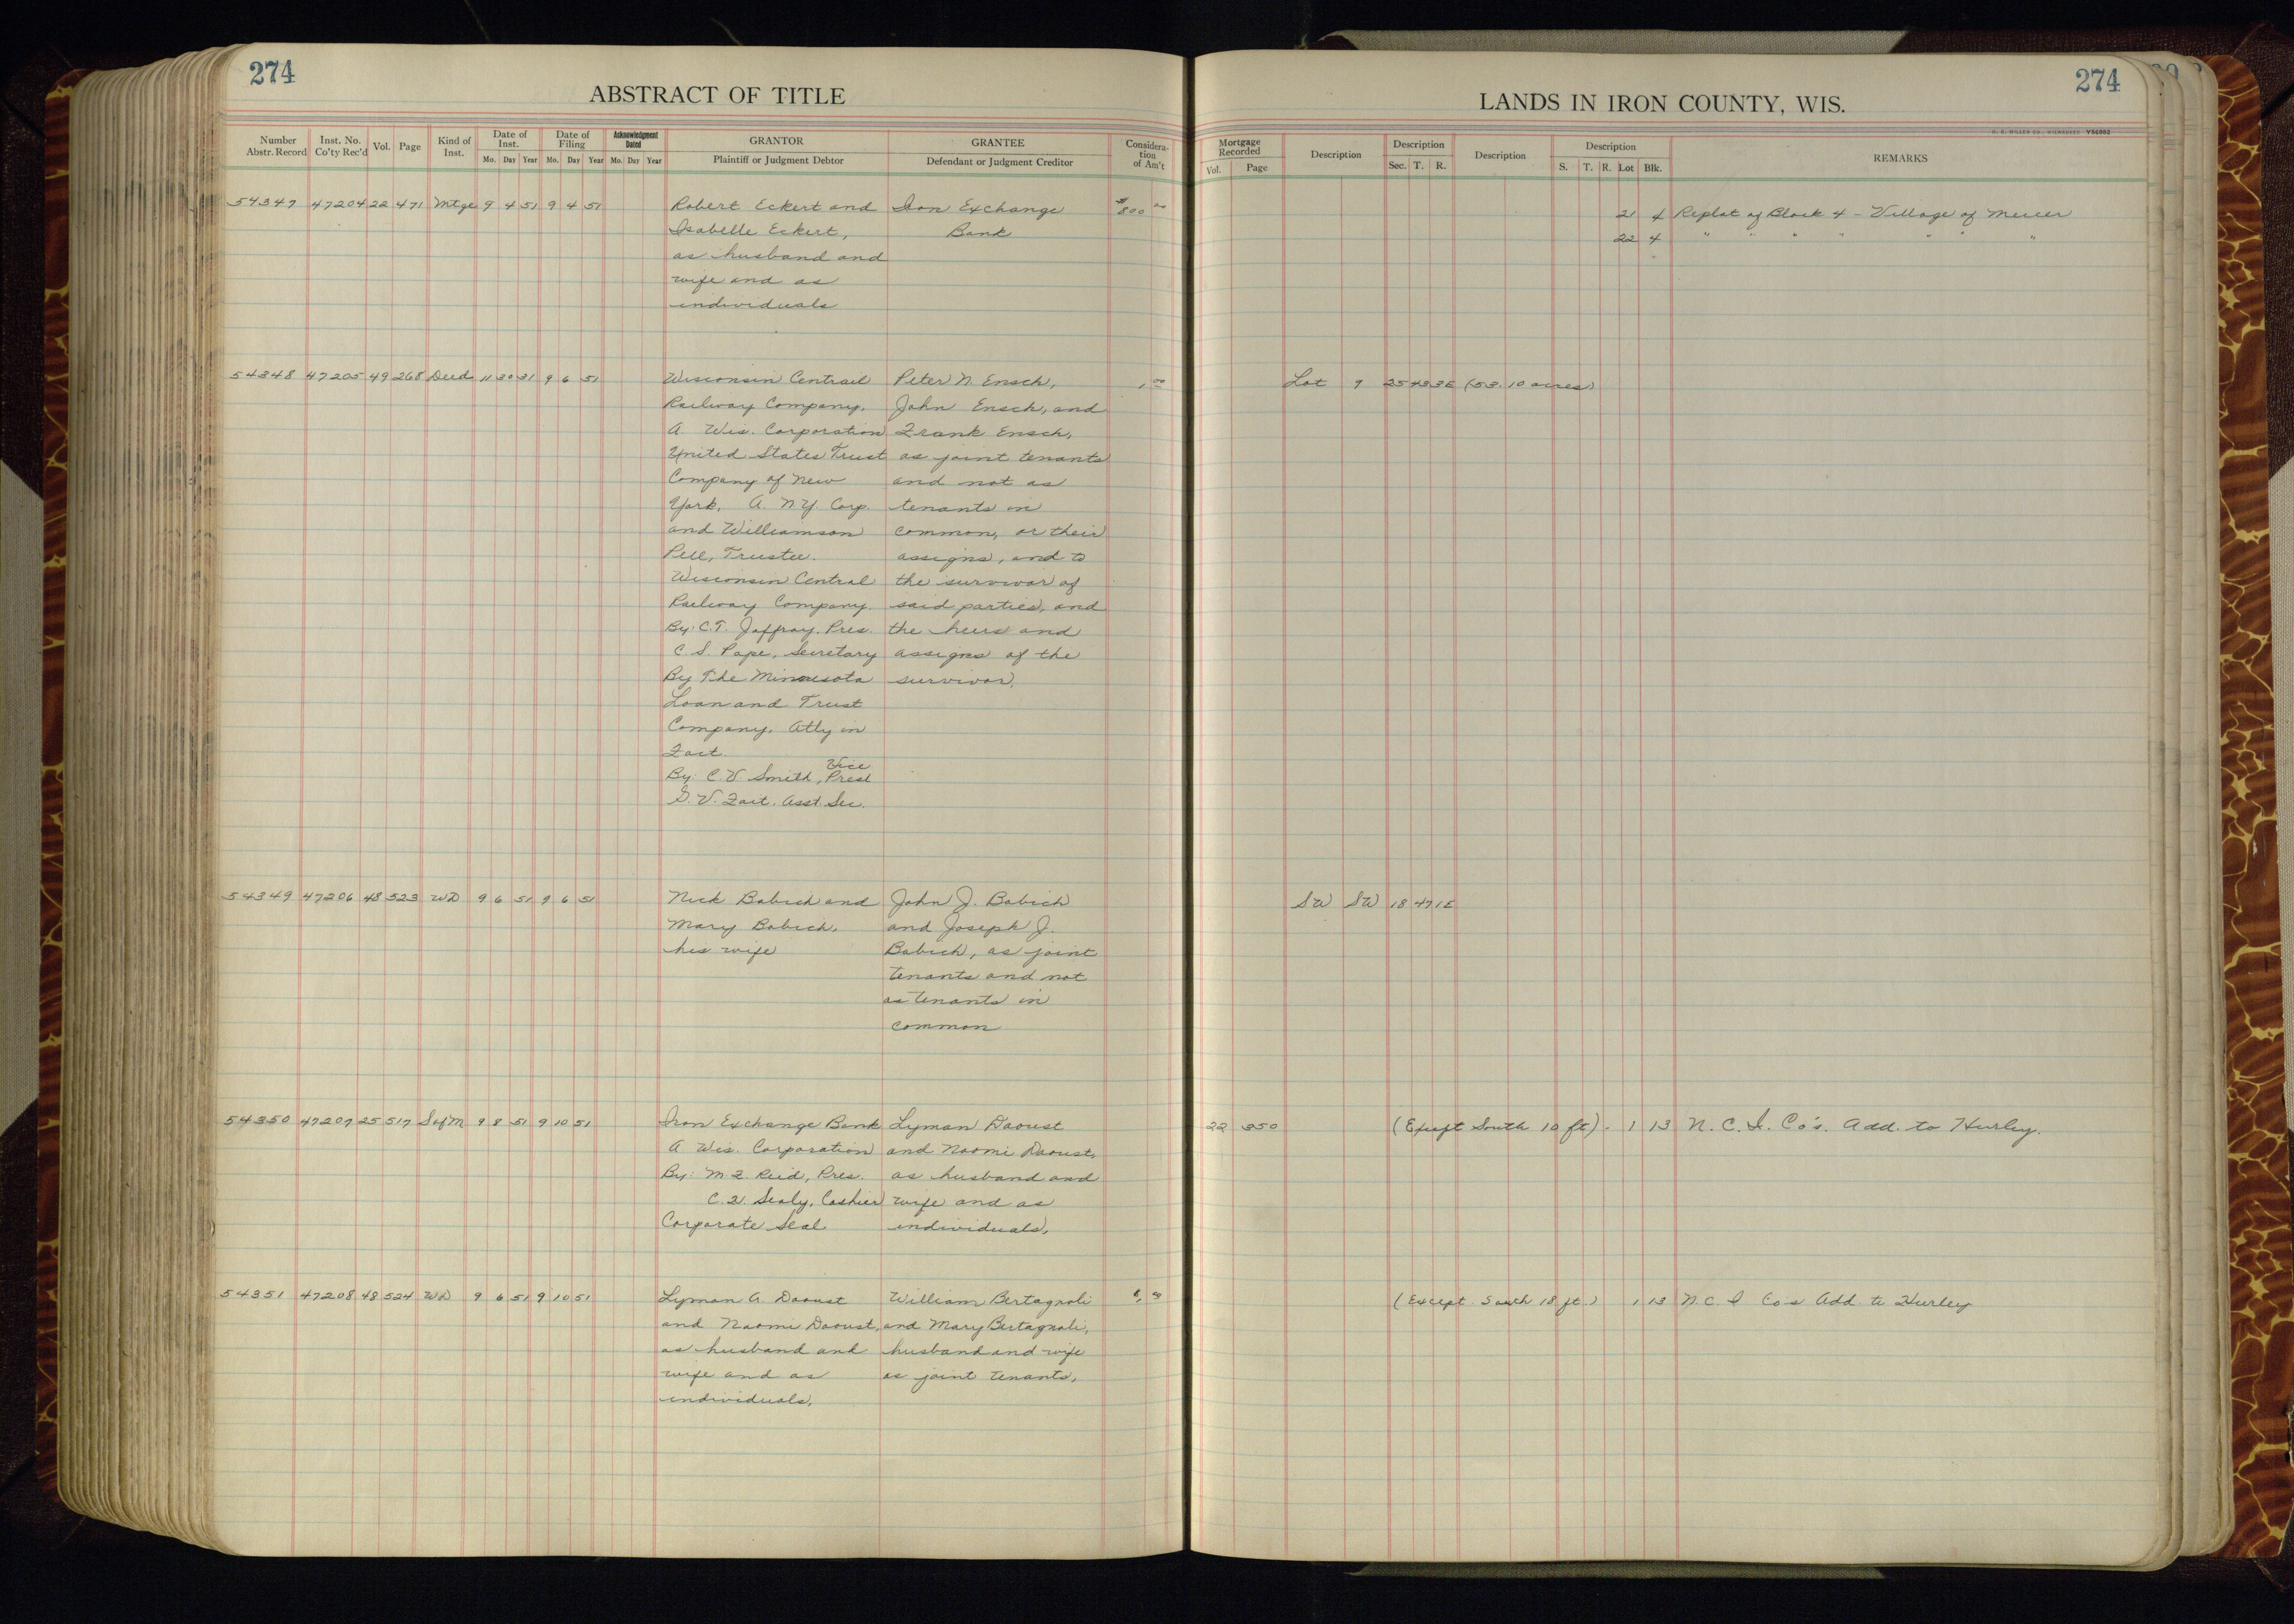 274
ABSTRACT OF TITLE
Number Abstr. Record
Inst. No. Co'ty Rec'd
Vol.
Page
Kind of Inst.
Date of Inst.
Mo. Day Year
Date of Filing
Mo. Day Year
Acknowledgment Dated
Mo. Day Year
GRANTOR
Plaintiff or Judgment Debtor
GRANTEE
Defendant or Judgment Creditor
Considera-tion of Am't
54347 47204 22 471 Mtge 9 4 51 9 4 51 Robert Eckert and Iron Exchange $800 00
Isabelle Eckert, Bank
as husband and
wife and as
individuals
54348 47205 49 268 Deed 11 30 31 9 6 51 Wisconsin Central Peter N. Ensch, 1, 00
Railway Company, John Ensch, and
A Wis. Corporation Frank Ensch,
United States Trust as joint tenants
Company of New and not as
York, A. N.Y. Corp. tenants in
and Williamson common, or their
Pell, Trustee. assigns, and to
Wisconsin Central the survivor of
Railway Company. said parties, and
By: C.T. Jaffray, Pres. the heirs and
C. S. Pope, Secretary assigns of the
By The Minnesota survivor.
Loan and Trust
Company, Atty in
Fact.
By: C. V. Smith, Vice Prest
Asst. Sec.
54349 47206 48 523 WD 9 6 51 9 6 51 Nick Babich and John J. Babich
Mary Babich, and Joseph J.
his wife Babich, as joint
tenants and not
as tenants in
common
54350 47207 25 517 S of M 9 8 51 9 10 51 Iron Exchange Bank Lyman Daoust
A Wis. Corporation and Naomi Daoust,
By: M. F. Reid, Pres. as husband and
Sealy, Cashier wife and as
Corporate Seal individuals,
54351 47208 48 524 WD 9 6 51 9 10 51 Lyman A. Daoust William Bertagnoli
and Naomi Daoust, and Mary Bertagnoli,
as husband and husband and wife
wife and as as joint tenants,
individuals,
274
LANDS IN IRON COUNTY, WIS.
Y56952
Mortgage Recorded
Vol. Page
Description
Description
Sec. T. R.
Description
Description
S. T. R. Lot Blk.
REMARKS
21 4 Replat of Block 4 - Village of Mercer
22 4 " " " " " " "
Lot 9 25 43 3E (53.10 acres)
SW SW 18 47 1E
22 350 (Except South 10 ft). 1 13 N. C. I. Co's. Add. to Hurley.
(Except South 18 ft.) 1 13 N.C. I Co's Add. to Hurley